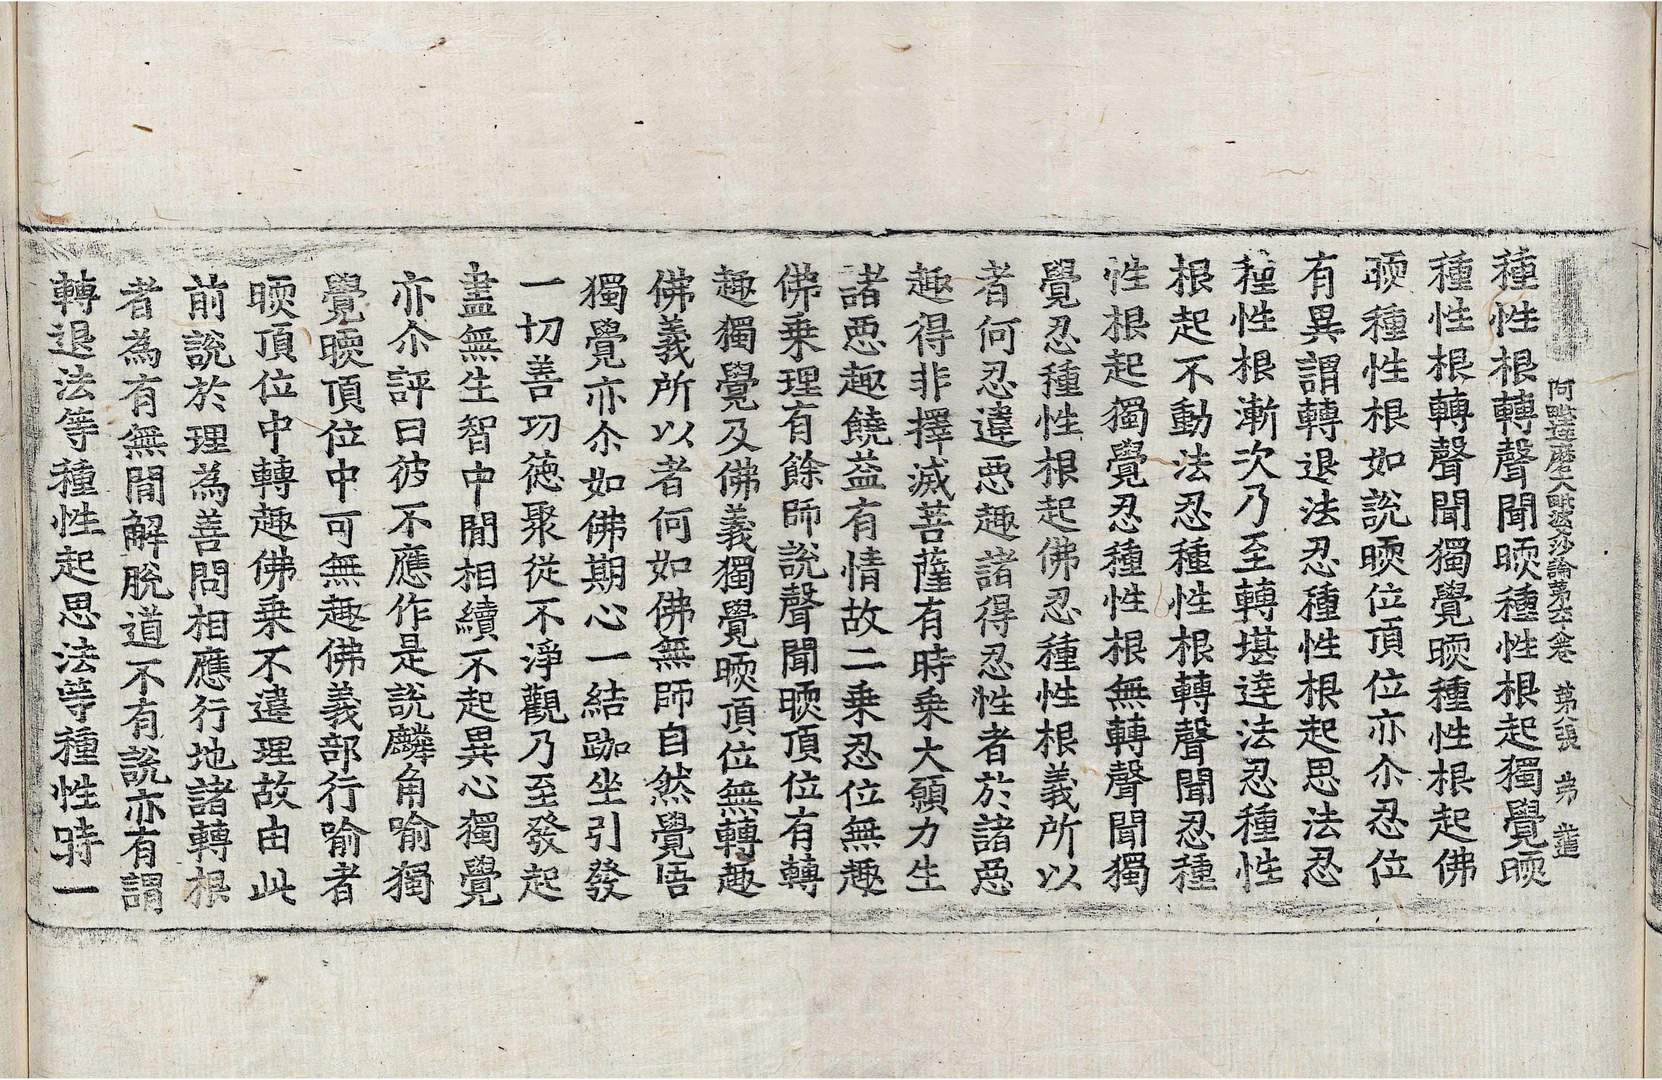 阿毗達磨大毗婆沙論第六十八卷 第八張 弟
種性根轉聲聞㬉種性根起獨覺㬉
種性根轉聲聞獨覺㬉種性根起佛
㬉種性根如說㬉位頂位亦尒忍位
有異謂轉退法忍種性根起思法忍
種性根漸次乃至轉堪達法忍種性
根起不動法忍種性根轉聲聞忍種
性根起獨覺忍種性根無轉聲聞獨
覺忍種性根起佛忍種性根義所以
者何忍違惡趣諸得忍性者於諸惡
趣得非擇滅菩薩有時乘大願力生
諸惡趣饒益有情故二乘忍位無趣
佛乘理有餘師說聲聞㬉頂位有轉
趣獨覺及佛義獨覺㬉頂位無轉趣
佛義所以者何如佛無師自然覺悟
獨覺亦尒如佛期心一結跏坐引發
一切善功德聚從不淨觀乃至發起
盡無生智中閒相續不起異心獨覺
亦尒評曰彼不應作是說麟角喻獨
覺㬉頂位中可無趣佛義部行喻者
㬉頂位中轉趣佛乘不違理故由此
前說於理為善問相應行地諸轉根
者為有無閒解脫道不有說亦有謂
轉退法等種性起思法等種性時一